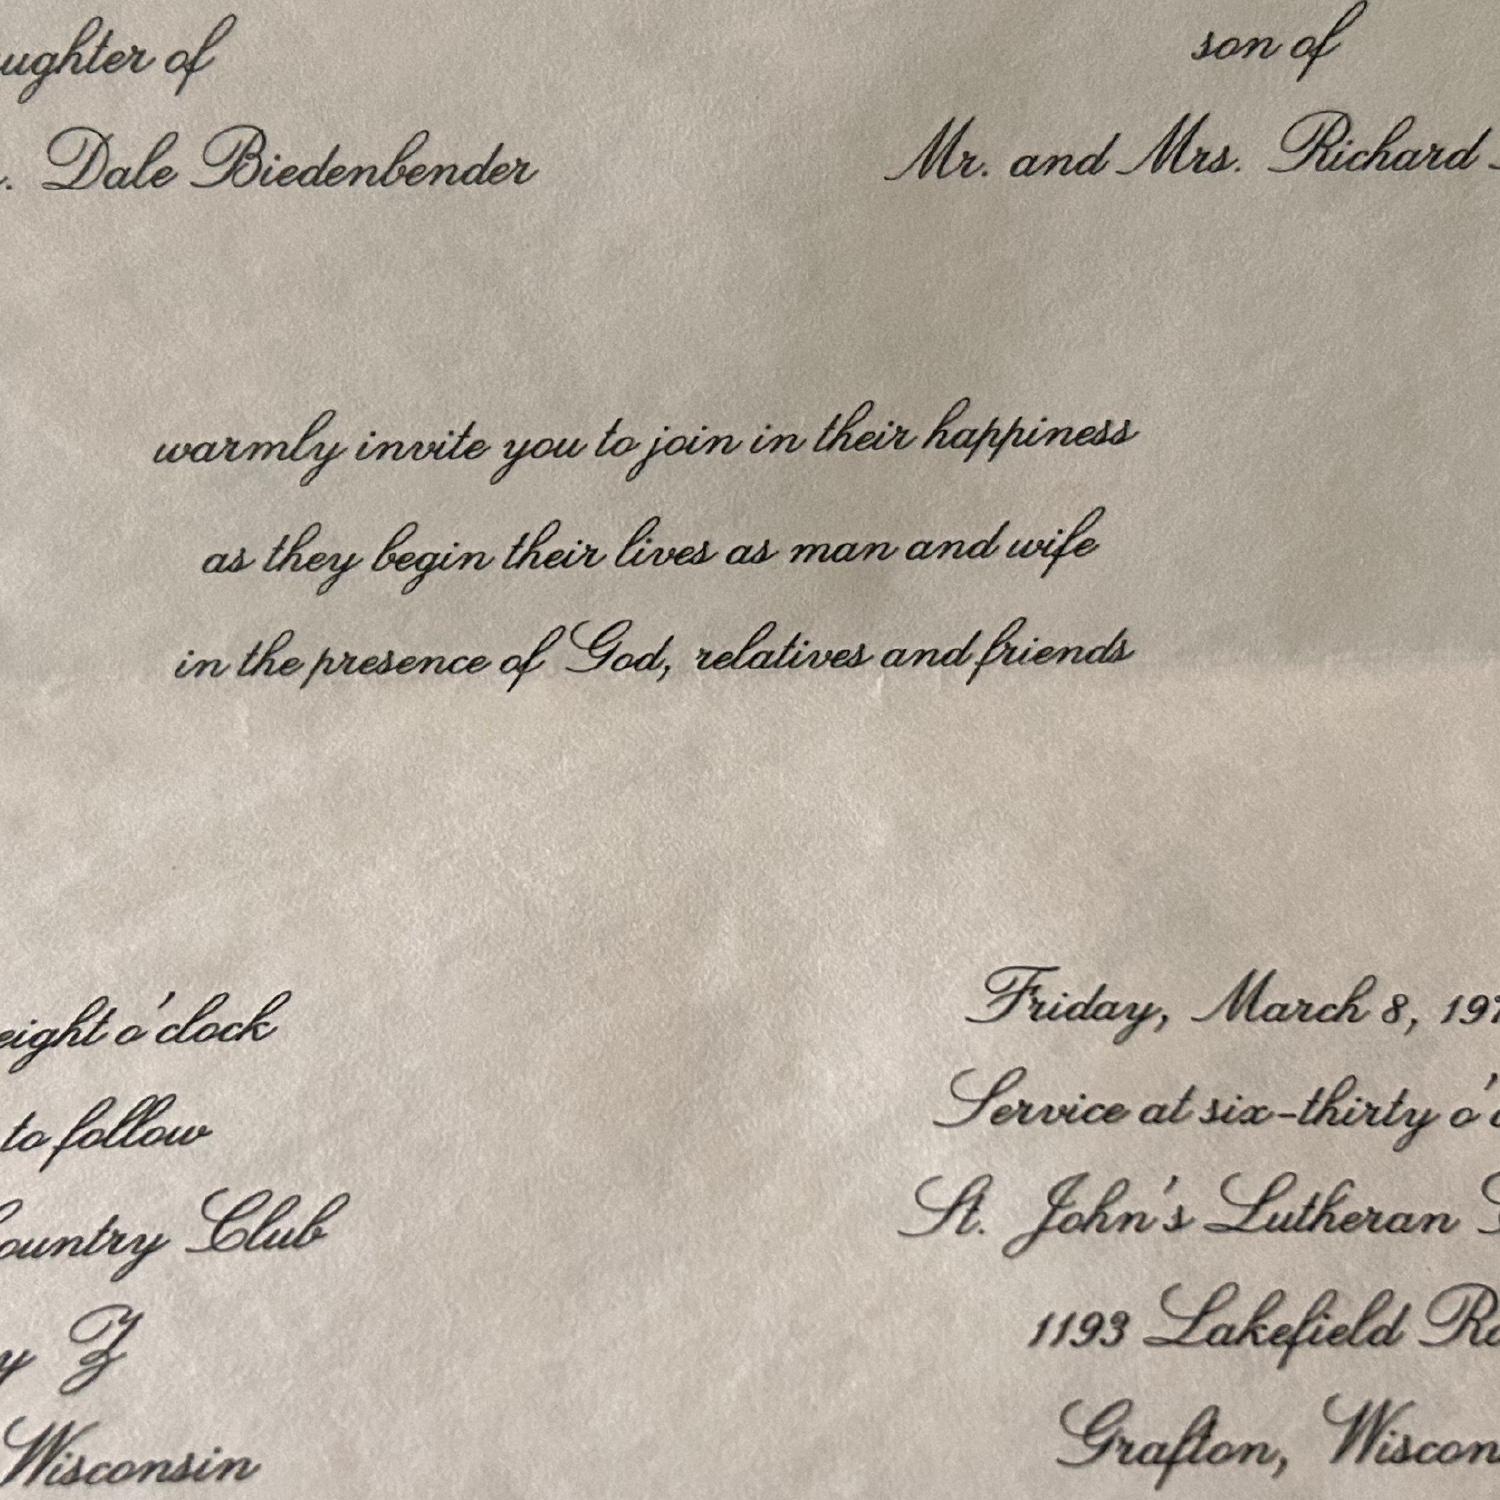 daughter of
Dale Biedenbender
son of
Mr. and Mrs. Richard
warmly invite you to join in their happiness
as they begin their lives as man and wife
in the presence of God, relatives and friends
eight o'clock
to follow
Country Club
Z
Wisconsin
Friday, March 8, 197
Service at six-thirty o'c
St. John's Lutheran
1193 Lakefield Ro
Grafton, Wiscon